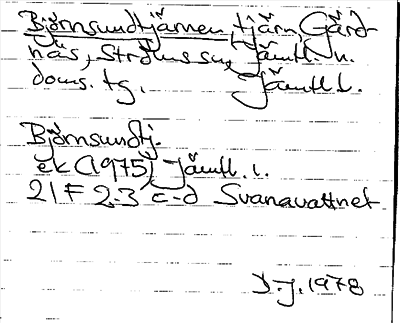 Björnsundtjärnen, tjärn, Gård-
näs, Ströms sn, Jämtl. n.
doms. tg. Jämtl l.
Björnsundtj.
ek (1975) Jämtl. l.
21F 2-3 c-d Svanavattnet
D.J. 1978